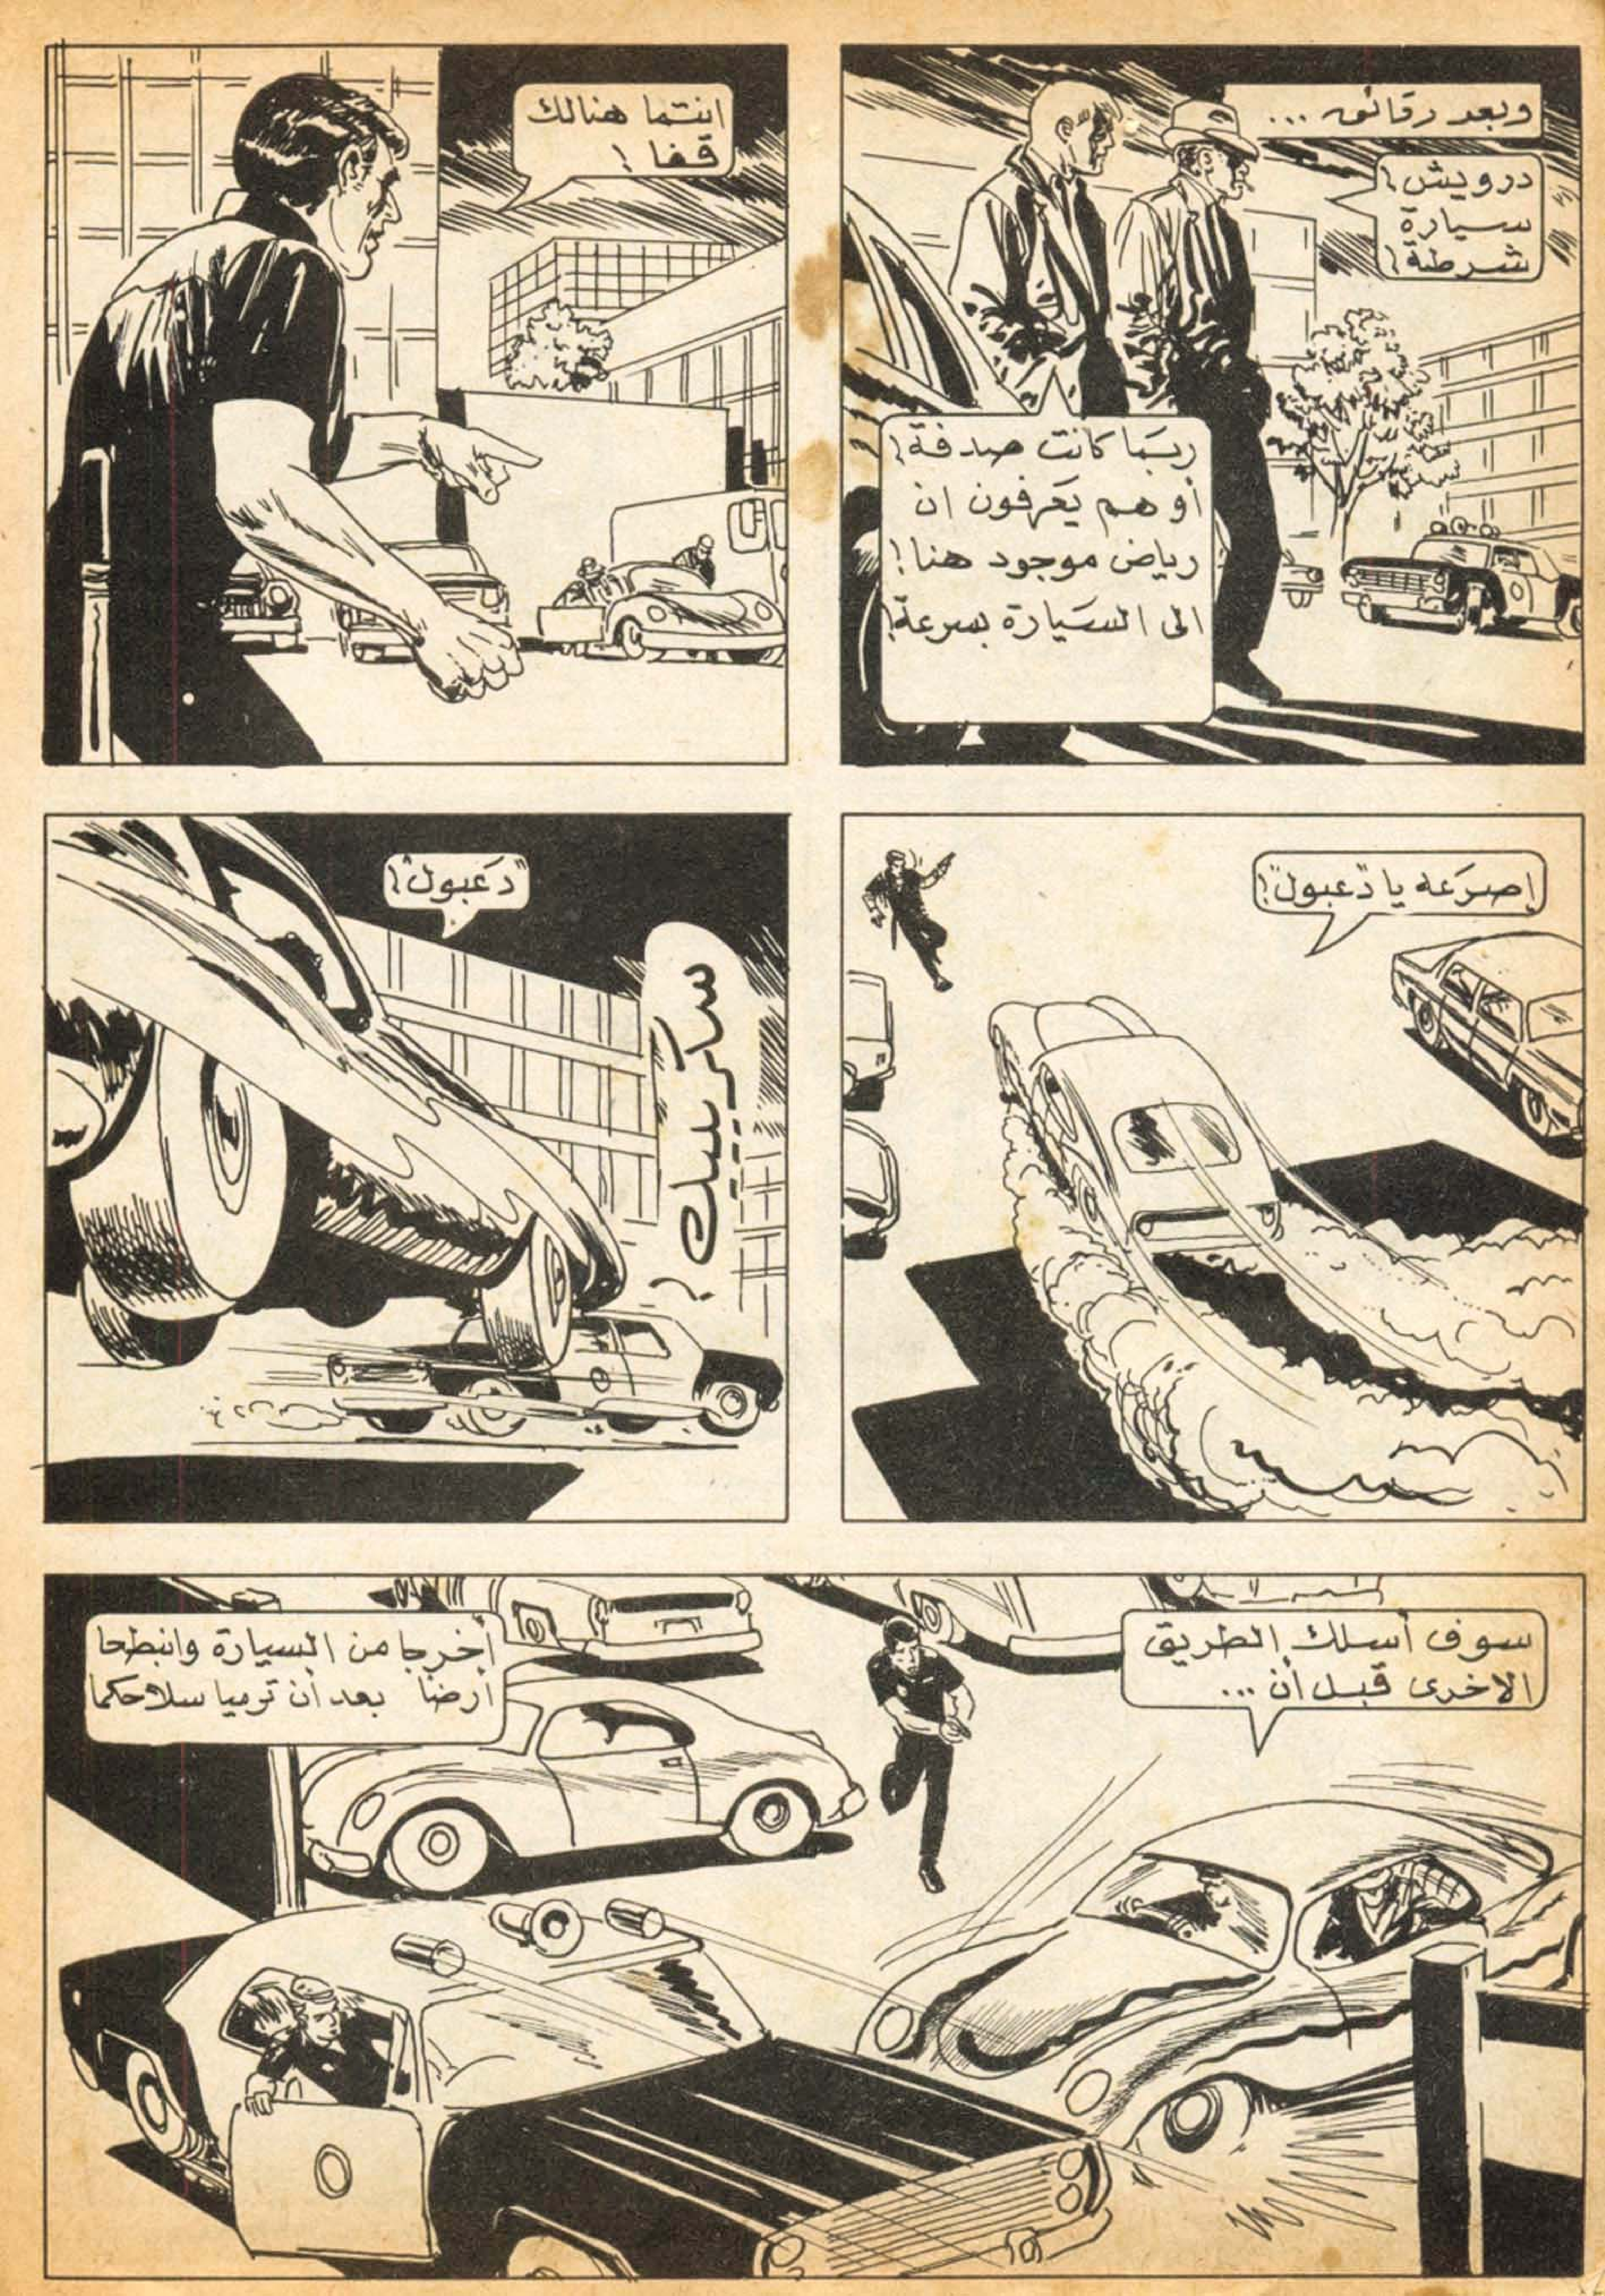 وبعد رقائق ...
درويش!
سيارة
شرطة!
ربّما كانت صدفة!
أو هم يَعرفون ان
رياض موجود هنا!
الى السَيارة بسرعة!
انتما هنالك
قفا !
إصرَعه يا "دَعبول"!
"دَعبول"!
سكرييييك !
سوف أسلك الطريق
الاخرى قبل أن ...
أخرجا من السيارة وانبطحا
أرضاً بعد أن ترميا سلاحكما